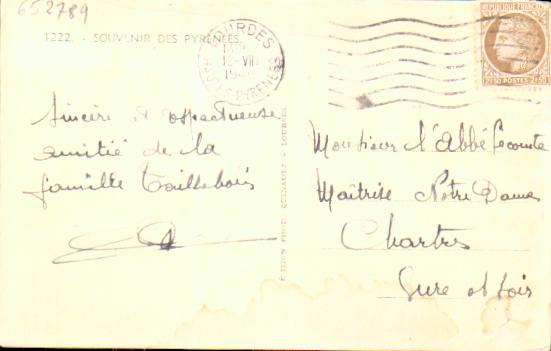 652789
1222. - SOUVENIR DES PYRÉNÉES
LOURDES
12-VII
HAUTES-PYRENEES
REPUBLIQUE FRANÇAISE
2F50 POSTES 2F50
Sincère et affectueuse
amitié de la
famille Taillebois
EDITION PHOTO QUINAULT - LOURDES
Monsieur l'Abbé Lecomte
Maîtrise Notre Dame
Chartres
Eure et Loir